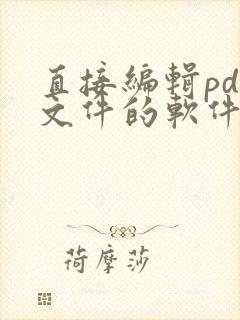 直接編輯pd
文件的軟件
荷摩莎